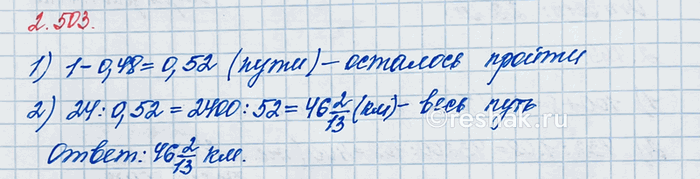 2.503.
1) 1-0,48=0,52 (пути)-осталось пройти
2) 24:0,52=2400:52=46 2/13 (км)-весь путь
©reshak.ru
Ответ: 46 2/13 км.